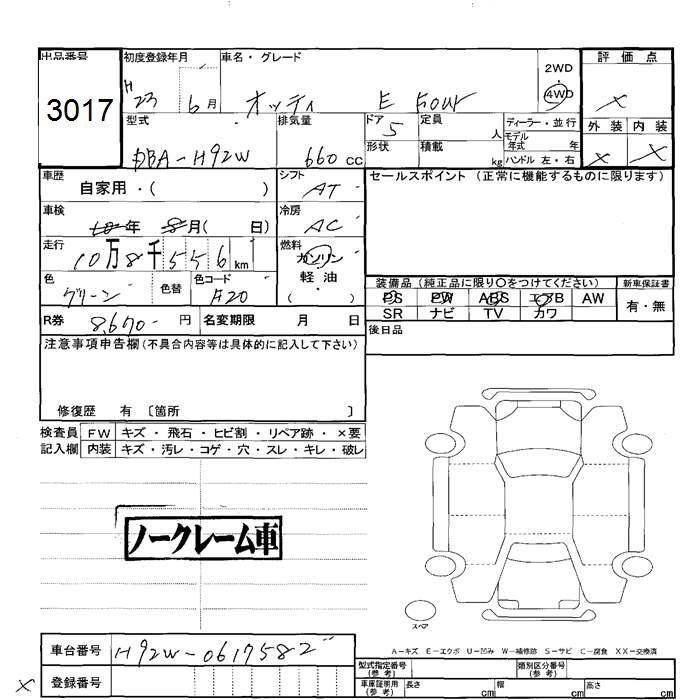 出品番号 初度登録年月 車名・グレード 2WD 評価点
3017 H 23 6月 オッティ E FOUR 4WD ×
型式 排気量 ドア 定員 人 ディーラー・並行 外装 内装
DBA-H92W 660 CC 5 モデル年式 年 × ×
形状 積載 kg ハンドル 左・右
車歴 シフト セールスポイント (正常に機能するものに限ります)
自家用・( ) AT
車検 冷房
年 8月( 日) AC
走行 燃料
10万8千556km ガソリン
軽油
( )
色 色替 色コード 装備品 (純正品に限り○をつけてください) 新車保証書
グリーン F20 PS PW ABS エアB AW 有・無
SR ナビ TV カワ
R券 8,670- 円 名変期限 月 日 後日品
注意事項申告欄(不具合内容等は具体的に記入して下さい)
修復歴 有 〔箇所 〕
検査員 FW キズ・飛石・ヒビ割・リペア跡・×要
記入欄 内装 キズ・汚レ・コゲ・穴・スレ・キレ・破レ
ノークレーム車
スペア
A-キズ E-エクボ U-凹み W-補修跡 S-サビ C-腐食 XX-交換済
車台番号 H92W-0617582
型式指定番号(参考) 類別区分番号(参考)
× 登録番号
車庫証明用(参考) 長さ cm 幅 cm 高さ cm